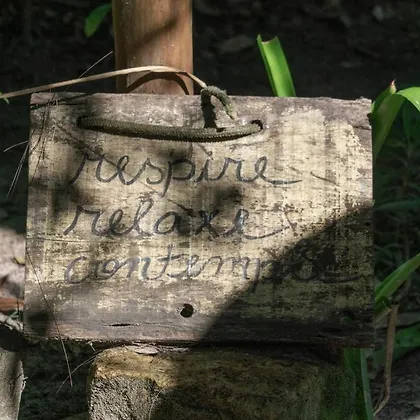 respire
relaxe
contemple